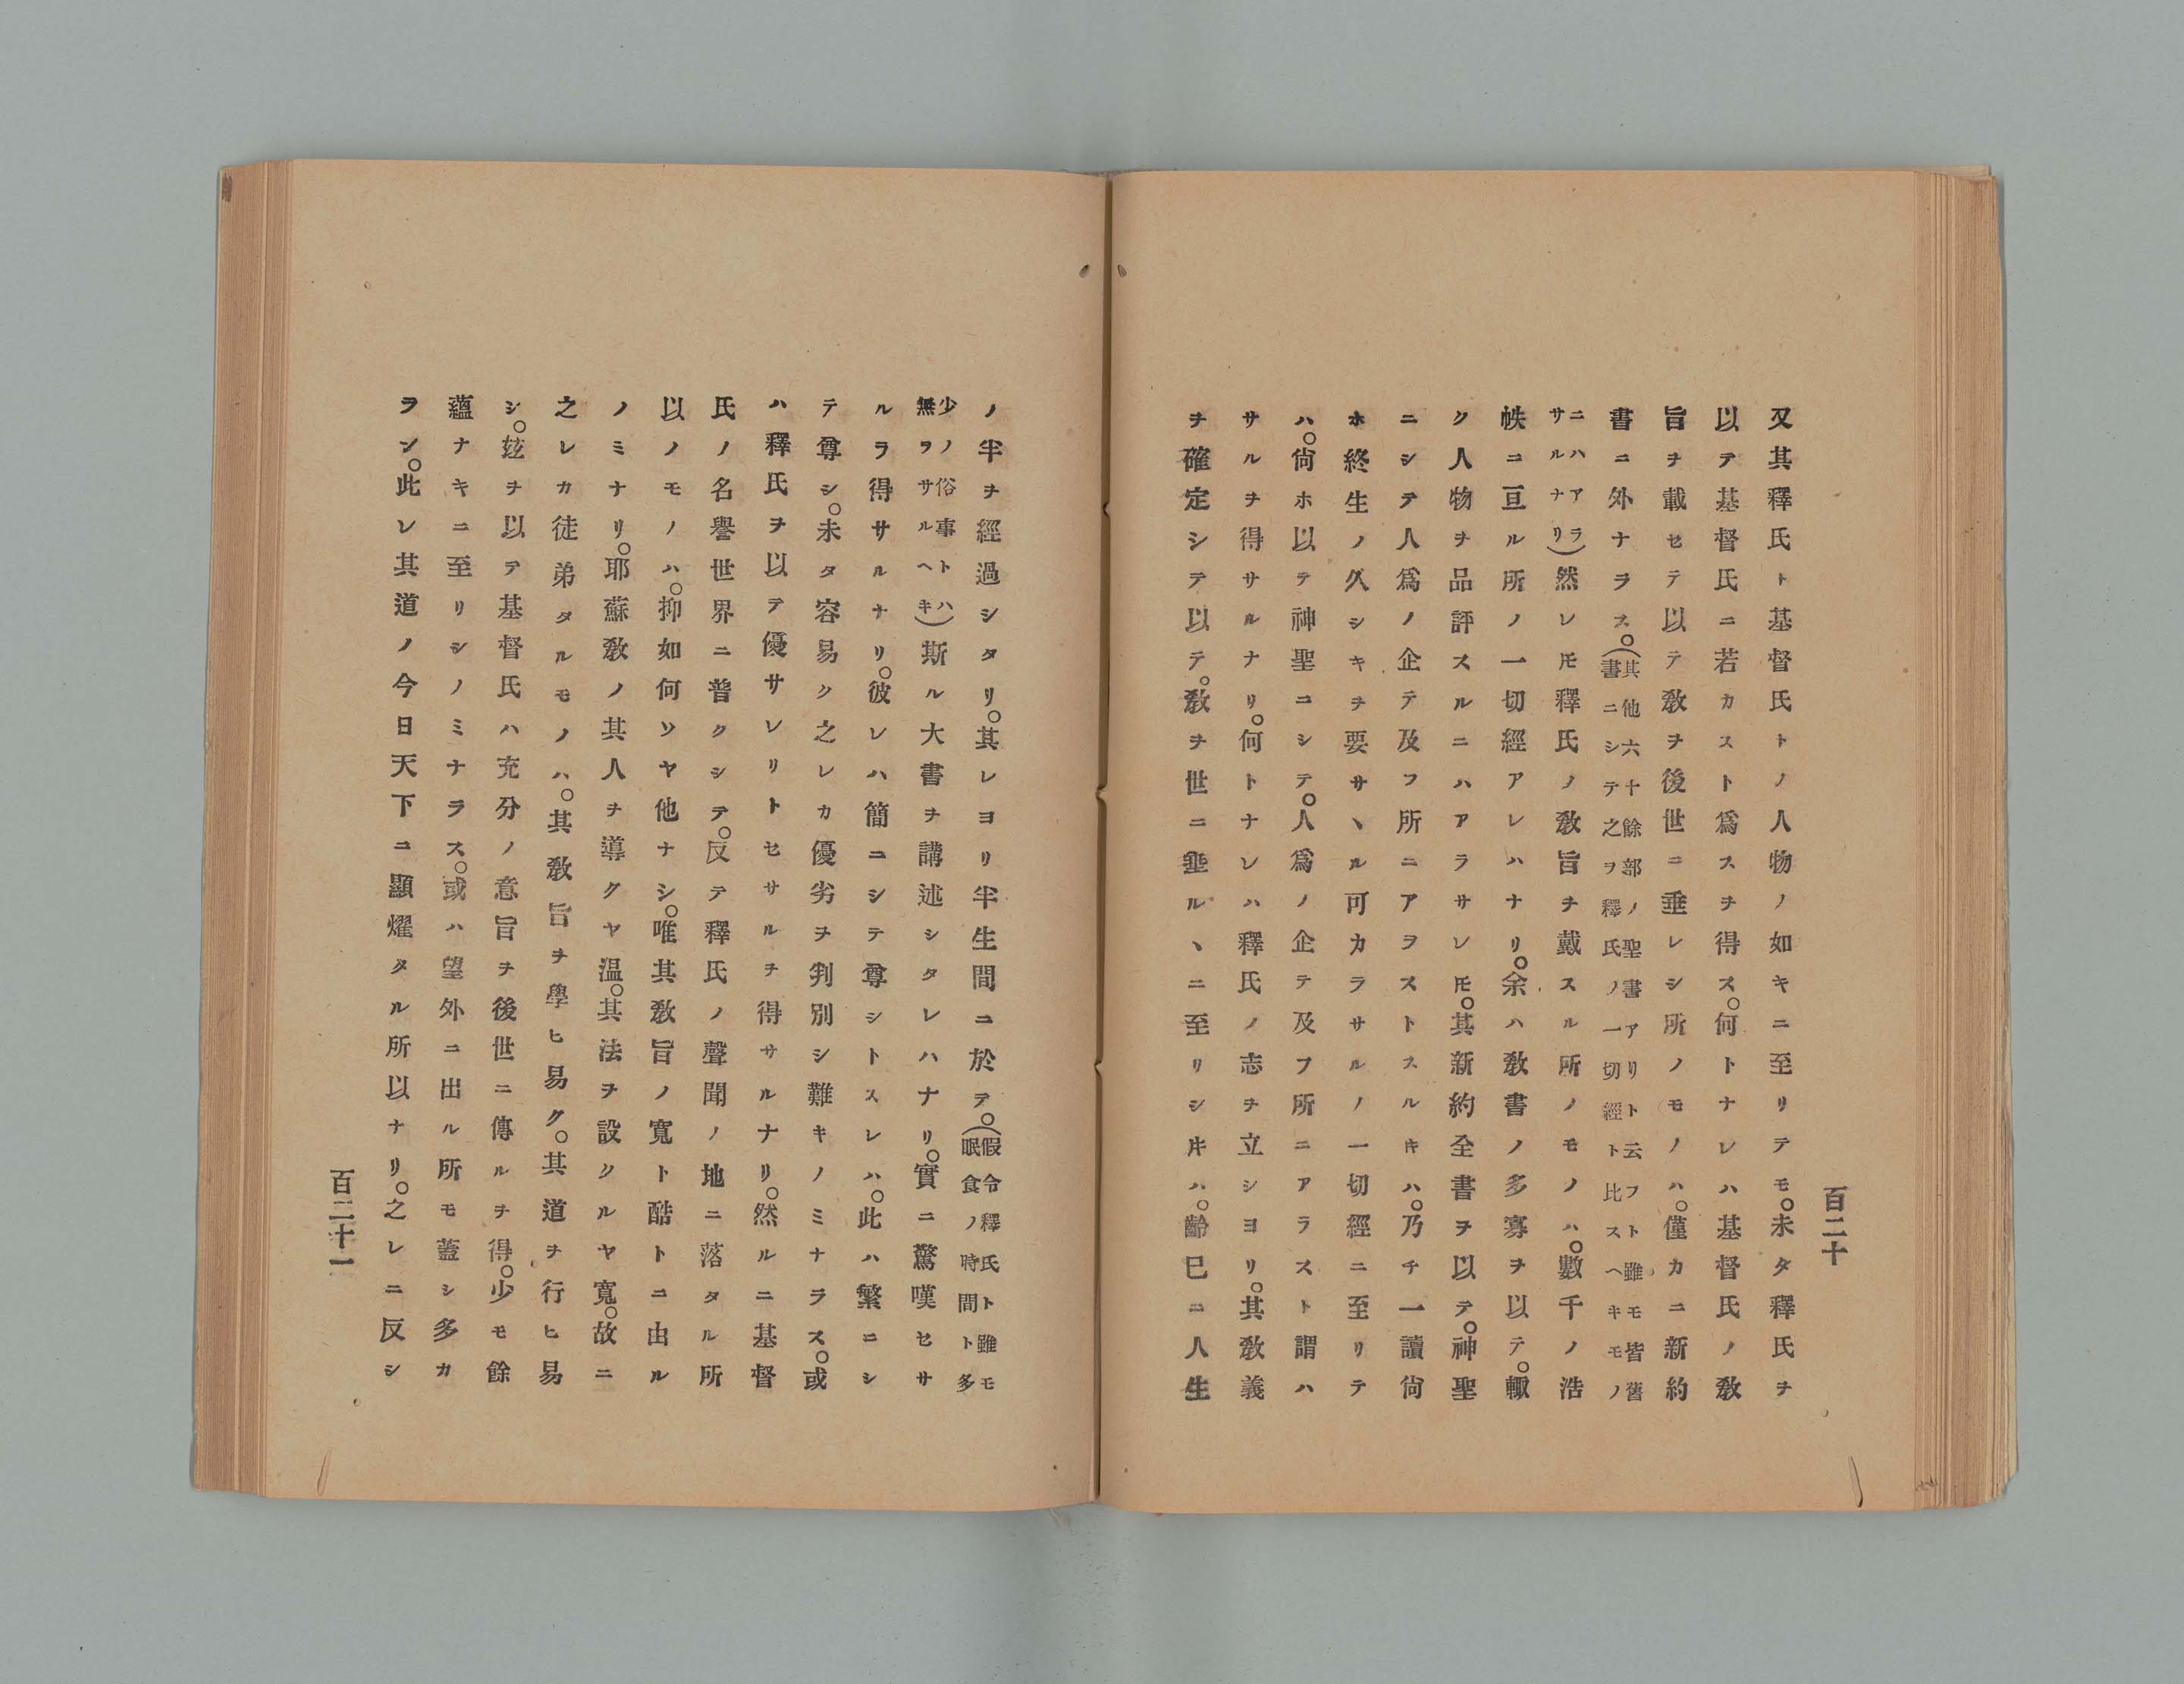 百二十
又其釋氏ト基督氏トノ人物ノ如キニ至リテモ。未タ釋氏ヲ
以テ基督氏ニ若カスト爲スヲ得ス。何トナレハ基督氏ノ敎
旨ヲ載セテ以テ敎ヲ後世ニ垂レシ所ノモノハ。僅カニ新約
書ニ外ナラス。(其他六十餘部ノ聖書アリト云フト雖モ皆舊
書ニシテ之ヲ釋氏ノ一切經ト比スヘキモノ
ニハアラ
サルナリ)然レ𪜈釋氏ノ敎旨ヲ戴スル所ノモノハ。數千ノ浩
帙ニ亘ル所ノ一切經アレハナリ。余ハ敎書ノ多寡ヲ以テ。輙
ク人物ヲ品評スルニハアラサレ𪜈。其新約全書ヲ以テ。神聖
ニシテ人爲ノ企テ及フ所ニアヲストスルキハ。乃チ一讀尙
ホ終生ノ久シキヲ要サヽル可カラサルノ一切經ニ至リテ
ハ。尙ホ以テ神聖ニシテ。人爲ノ企テ及フ所ニアラスト謂ハ
サルヲ得サルナリ。何トナレハ釋氏ノ志ヲ立シヨリ。其敎義
ヲ確定シテ以テ。敎ヲ世ニ垂ルヽニ至リシ片ハ。齡巳ニ人生
ノ半ヲ經過シタリ。其レヨリ半生間ニ於テ。(假令釋氏ト雖モ
眠食ノ時間ト多
少ノ俗事トハ
無ヲサルヘキ)斯ル大書ヲ講述シタレハナリ。實ニ驚嘆セサ
ルヲ得サルナリ。彼レハ簡ニシテ尊シトスレハ。此ハ繁ニシ
テ尊シ。未タ容易ク之レカ優劣ヲ判別シ難キノミナラス。或
ハ釋氏ヲ以テ優サレリトセサルヲ得サルナリ。然ルニ基督
氏ノ名譽世界ニ普クシテ。反テ釋氏ノ聲聞ノ地ニ落タル所
以ノモノハ。抑如何ソヤ他ナシ。唯其敎旨ノ寬ト酷トニ由ル
ノミナリ。耶蘇敎ノ其人ヲ導クヤ温。其法ヲ設クルヤ寬。故ニ
之レカ徒弟タルモノハ。其敎旨ヲ學ヒ易ク。其道ヲ行ヒ易
シ。玆ヲ以テ基督氏ハ充分ノ意旨ヲ後世ニ傳ルヲ得。少モ餘
蘊ナキニ至リシノミナラス。或ハ望外ニ出ル所モ蓋シ多カ
ラン。此レ其道ノ今日天下ニ顯燿タル所以ナリ。之レニ反シ
百二十一